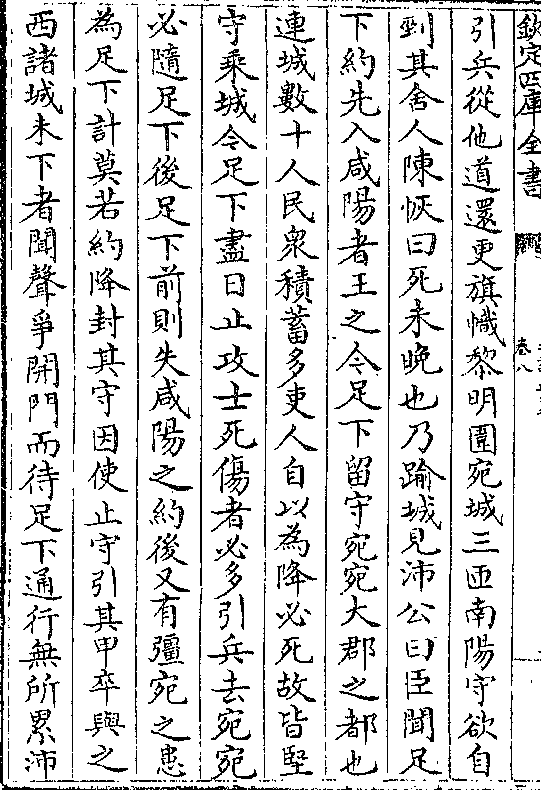 欽定四庫全書
卷八
引兵從他道還更旗幟黎明圍宛城三匝南陽守欲自
剄其舍人陳恢曰死未晚也乃踰城見沛公曰臣聞足
下約先入咸陽者王之令足下留守宛宛大郡之都也
連城數十人民衆積蓄多吏人自以為降必死故皆堅
守乗城令足下盡日止攻士死傷者必多引兵去宛宛
必隨足下後足下前則失咸陽之約後又有彊宛之患
為足下計莫若約降封其守因使止守引其甲卒與之
西諸城未下者聞聲爭開門而待足下通行無所累沛